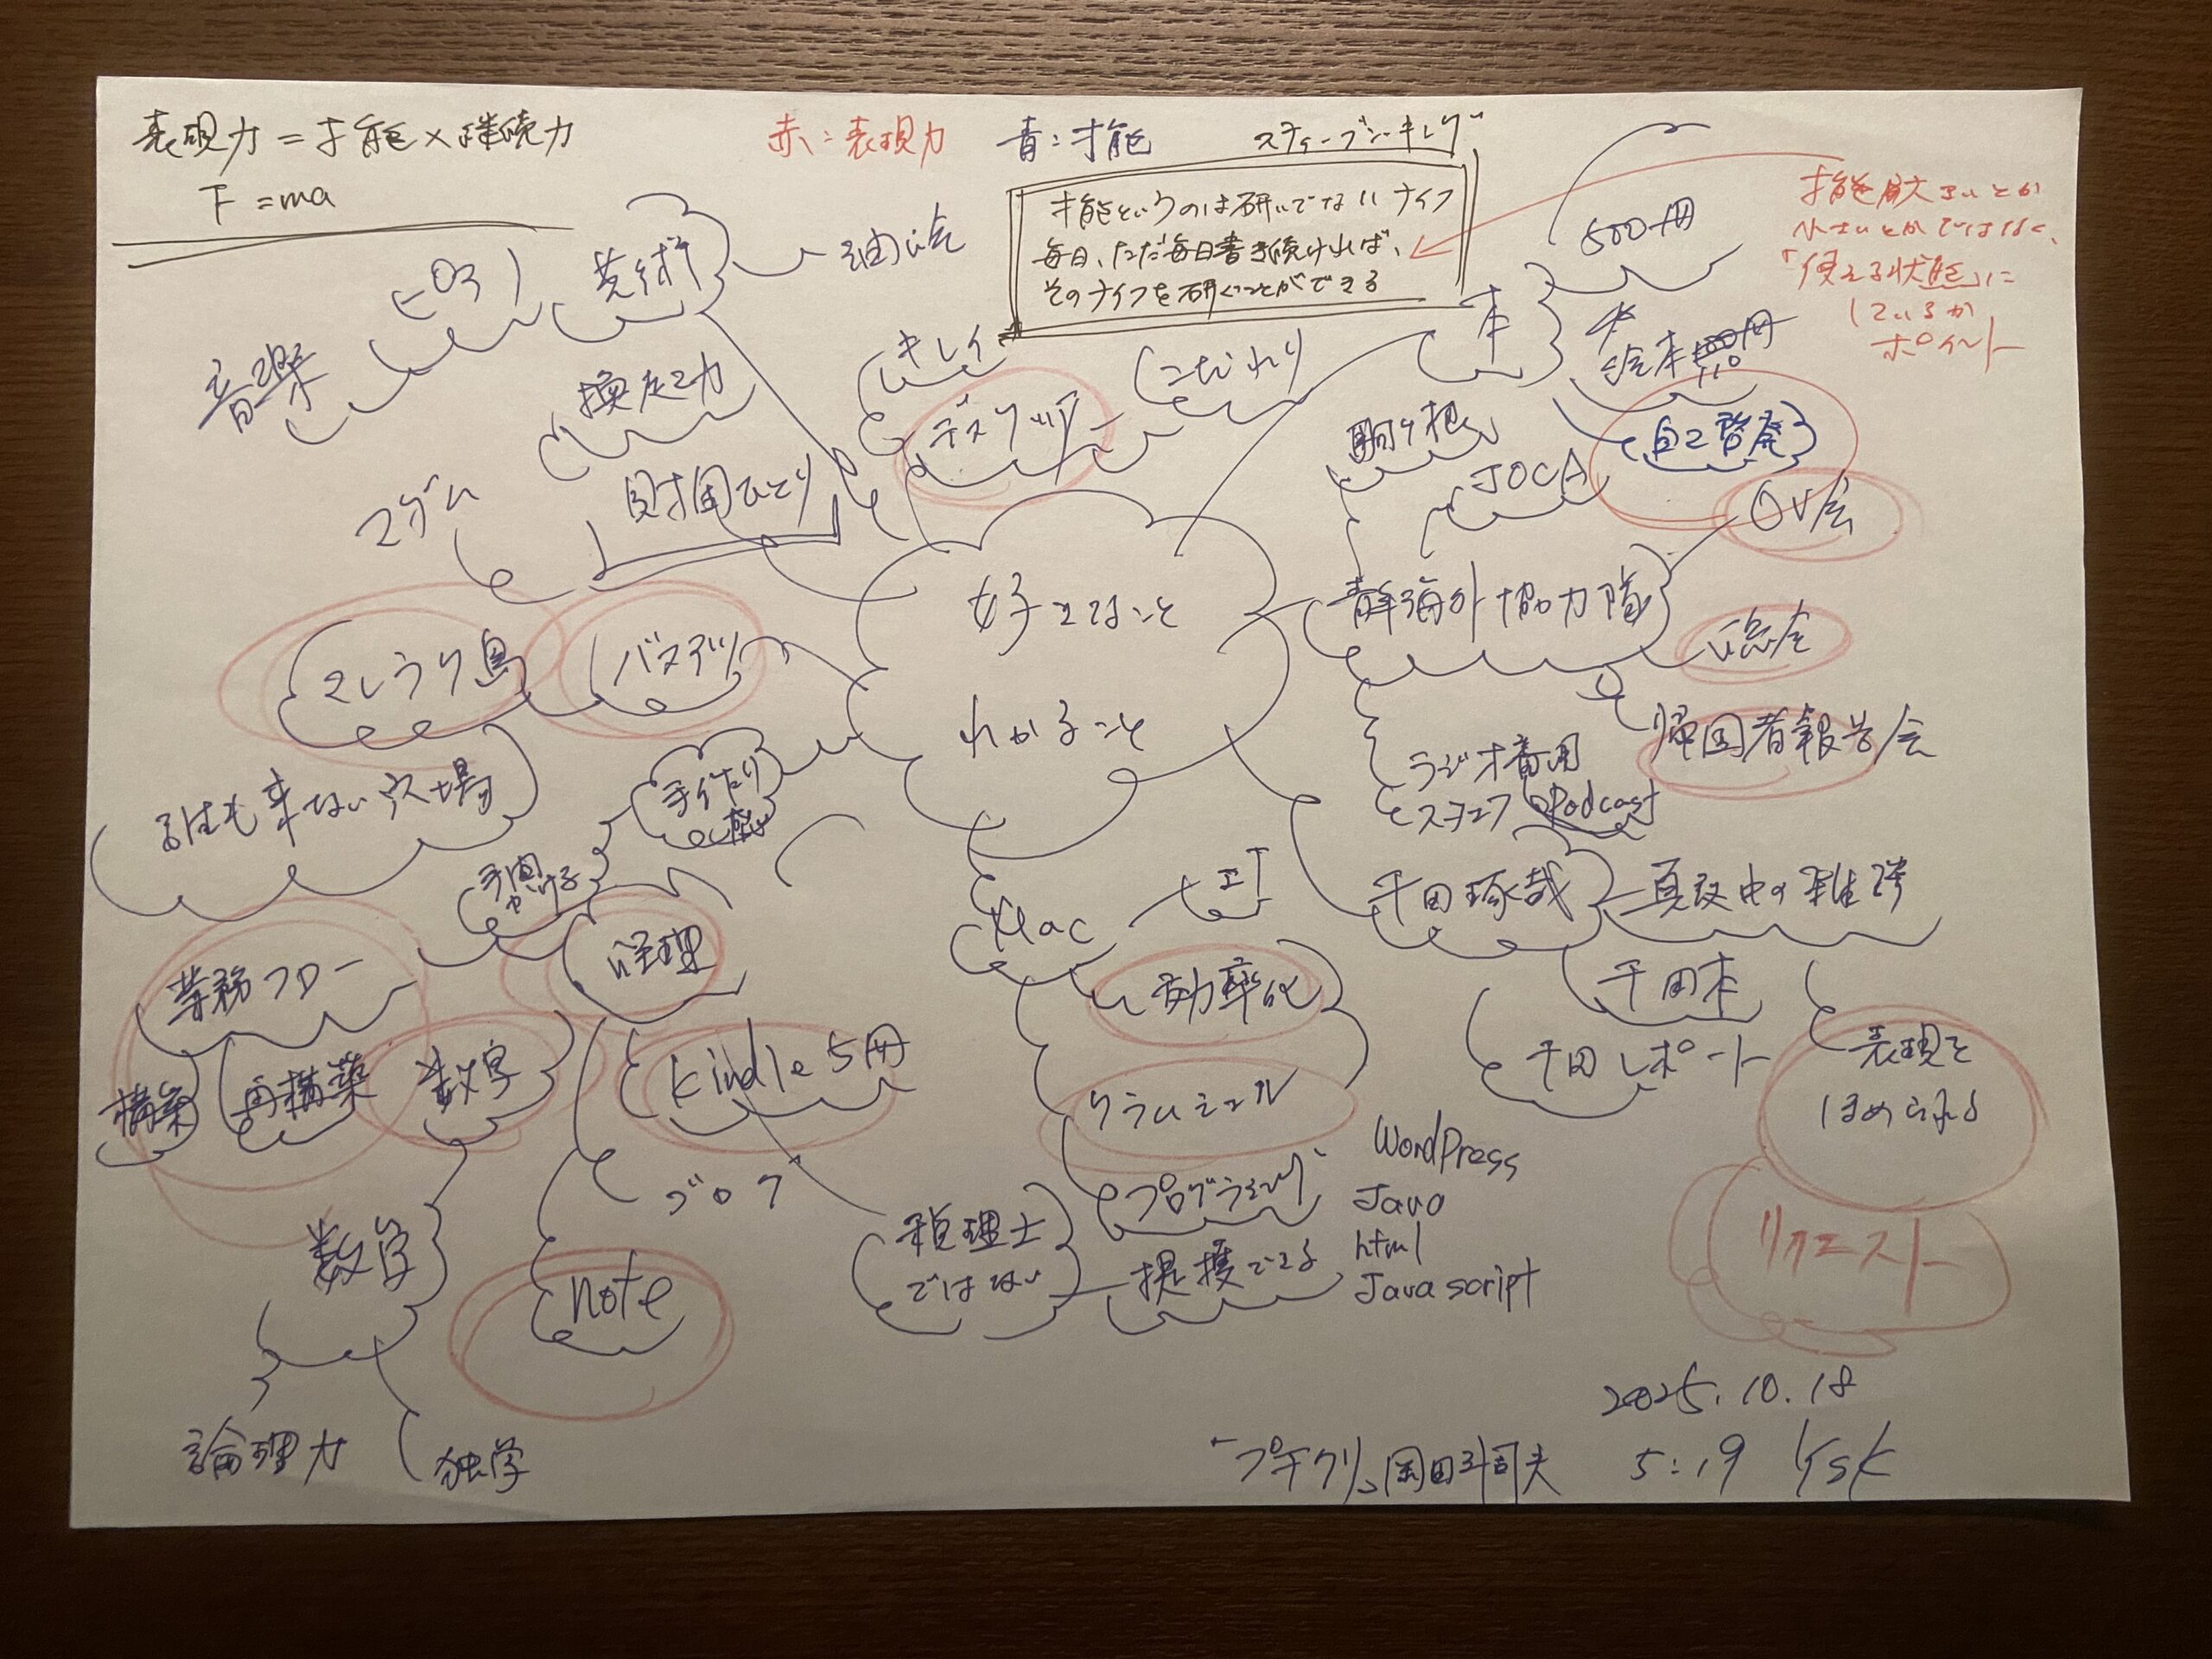 表現力=才能×継続力
F=ma
赤:表現力
青:才能
スティーブン・キング
才能というのは研いでないナイフ
毎日、ただ毎日書き続ければ、
そのナイフを研ぐことができる
小さいとかではなく、
「使える状態」に
しているか
ポイント
500冊
本
絵本
自己啓発
芸術
油絵
ピアノ
音楽
キレイ
デスクツア
こだわり
換定力
財団ひとり
マダム
駒ヶ根
JOCA
OV会
青年海外協力隊
総会
帰国者報告会
ラジオ番組
スタエフ Podcast
好きなこと
わかること
バヌアツ
マレクラ島
誰も来ない穴場
手作り
手間
かける
経理
業務フロー
構築
再構築
数字
数学
論理力
独学
Kindle5冊
ブログ
note
税理士
ではない
提携できる
Mac
IT
効率化
クラムシェル
プログラミング
WordPress
Java
html
Javascript
千田琢哉
真夜中の雑談
千田本
千田レポート
表現を
ほめられる
リクエスト
2025.10.18
5:19 Ksk
「プチクリ」岡田斗司夫